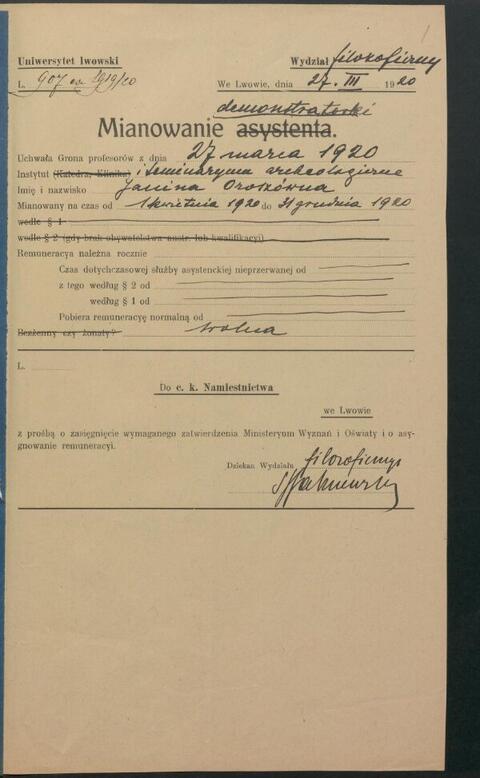 1
Uniwersytet lwowski
Wydział filozoficzny
L. 907 ex 1919/20
We Lwowie, dnia 27. III 1920
demonstratorki
Mianowanie asystenta.
Uchwała Grona profesorów z dnia 27 marca 1920
Instytut (Katedra, Klinika) i Seminaryum archeologiczne
Imię i nazwisko Janina
Mianowany na czas od 1 kwietnia 1920 do 31 grudnia 1920
wedle § 1
wedle § 2 (gdy brak obywatelstwa austr. lub kwalifikacyi)
Remuneracya należna rocznie
Czas dotychczasowej służby asystenckiej nieprzerwanej od
z tego według § 2 od
według § 1 od
Pobiera remuneracyę normalną od
Bezżenny czy żonaty? wolna
L.
Do c. k. Namiestnictwa
we Lwowie
z prośbą o zasięgnięcie wymaganego zatwierdzenia Ministeryum Wyznań i Oświaty i o asy-
gnowanie remuneracyi.
Dziekan Wydziału filozoficznego